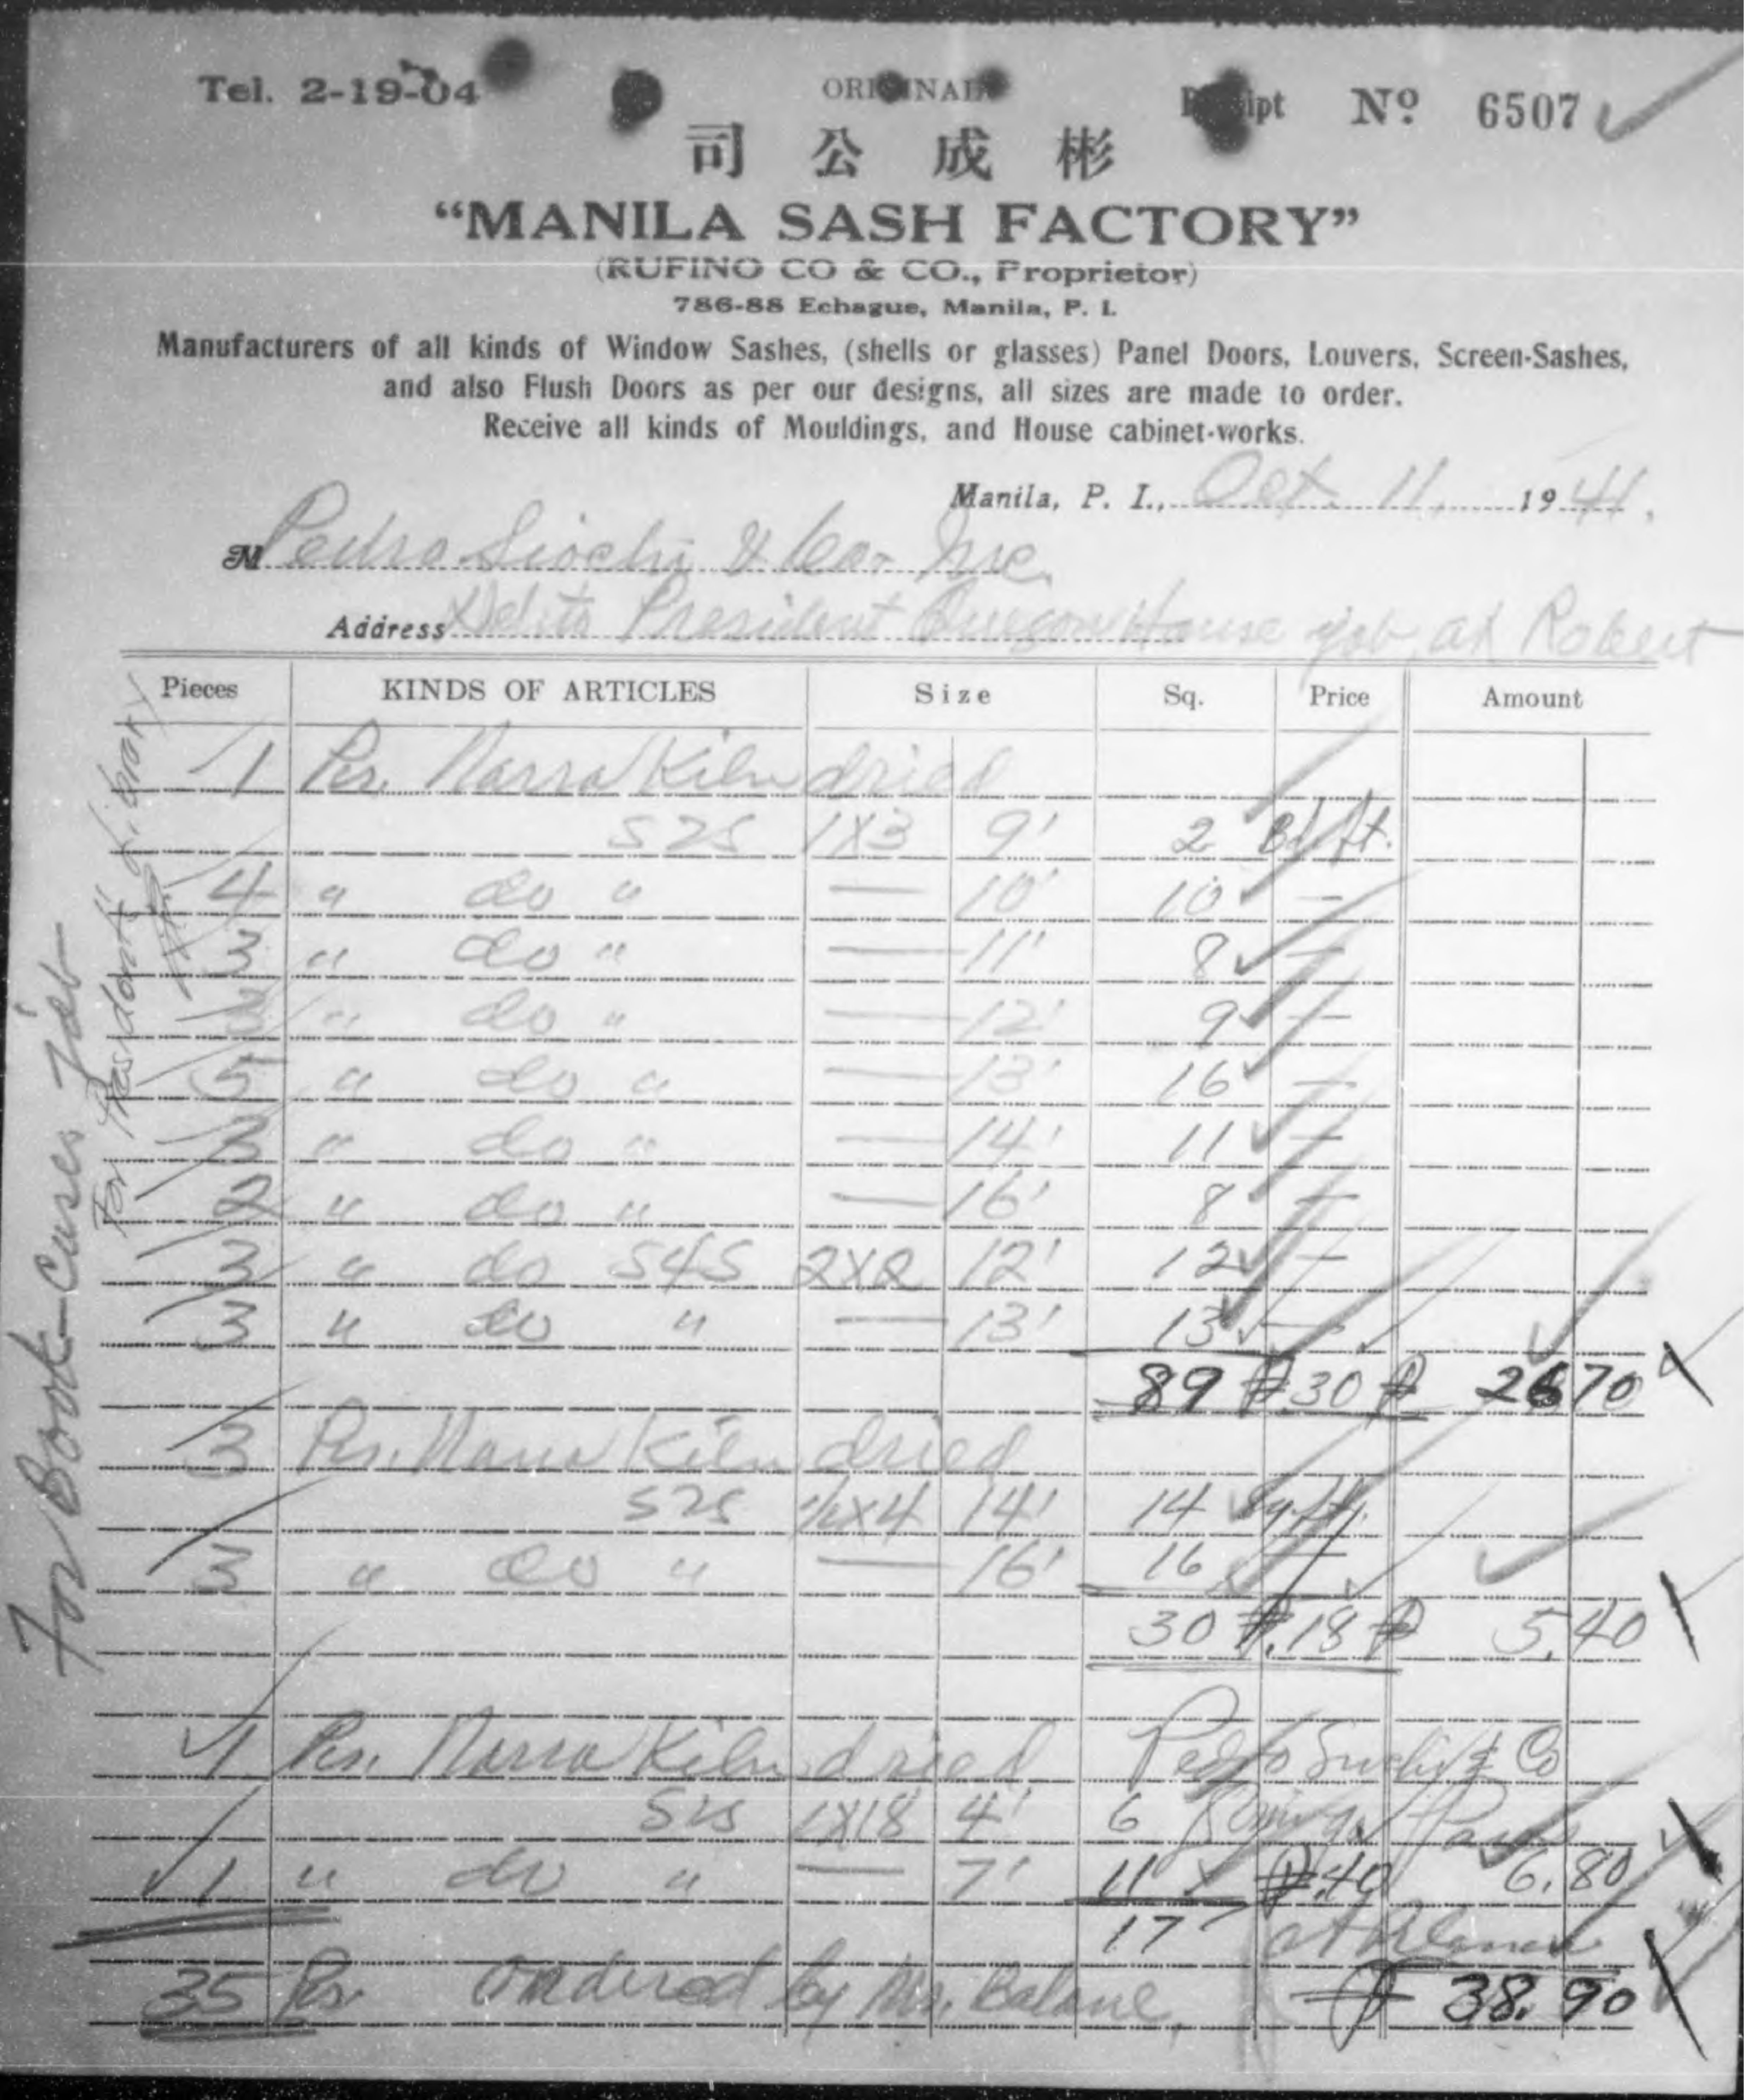 Tel. 2-19-04
ORIGINAL
Receipt Nº 6507
司公成彬
“MANILA SASH FACTORY”
(RUFINO CO & CO., Proprietor)
786-88 Echague, Manila, P. I.
Manufacturers of all kinds of Window Sashes, (shells or glasses) Panel Doors, Louvers, Screen-Sashes,
and also Flush Doors as per our designs, all sizes are made to order.
Receive all kinds of Mouldings, and House cabinet-works.
Manila, P. I., Oct. 11, 1941.
M Pedro Siochi & Co. Inc.
Address President Quezon House job at Robert
Pieces KINDS OF ARTICLES Size Sq. Price Amount
1 Pcs. Narra Kiln dried
S2S 1X3 9' 2 Bd ft.
4 " do " — 10' 10 —
3 " do " — 11' 8 —
3 " do " — 12' 9 —
5 " do " — 13' 16 —
3 " do " — 14' 11 —
2 " do " — 16' 8 —
3 " do S4S 2X2 12' 12 —
3 " do " — 13' 13 —
89 ₱.30 ₱ 26 70
3 Pcs. Narra Kiln dried
S2S 1/2X4 14' 14 Sq. ft.
3 " do " — 16' 16 —
30 ₱.18 ₱ 5.40
1 Pcs. Narra Kiln dried Pedro Siochi & Co
S2S 1X18 4' 6
1 " do " — 7' 11 ₱.40 6.80
17
35 Pcs. Ordered by Mr. Balane, ₱ 38.90
For Book-Cases Job
For President's Library